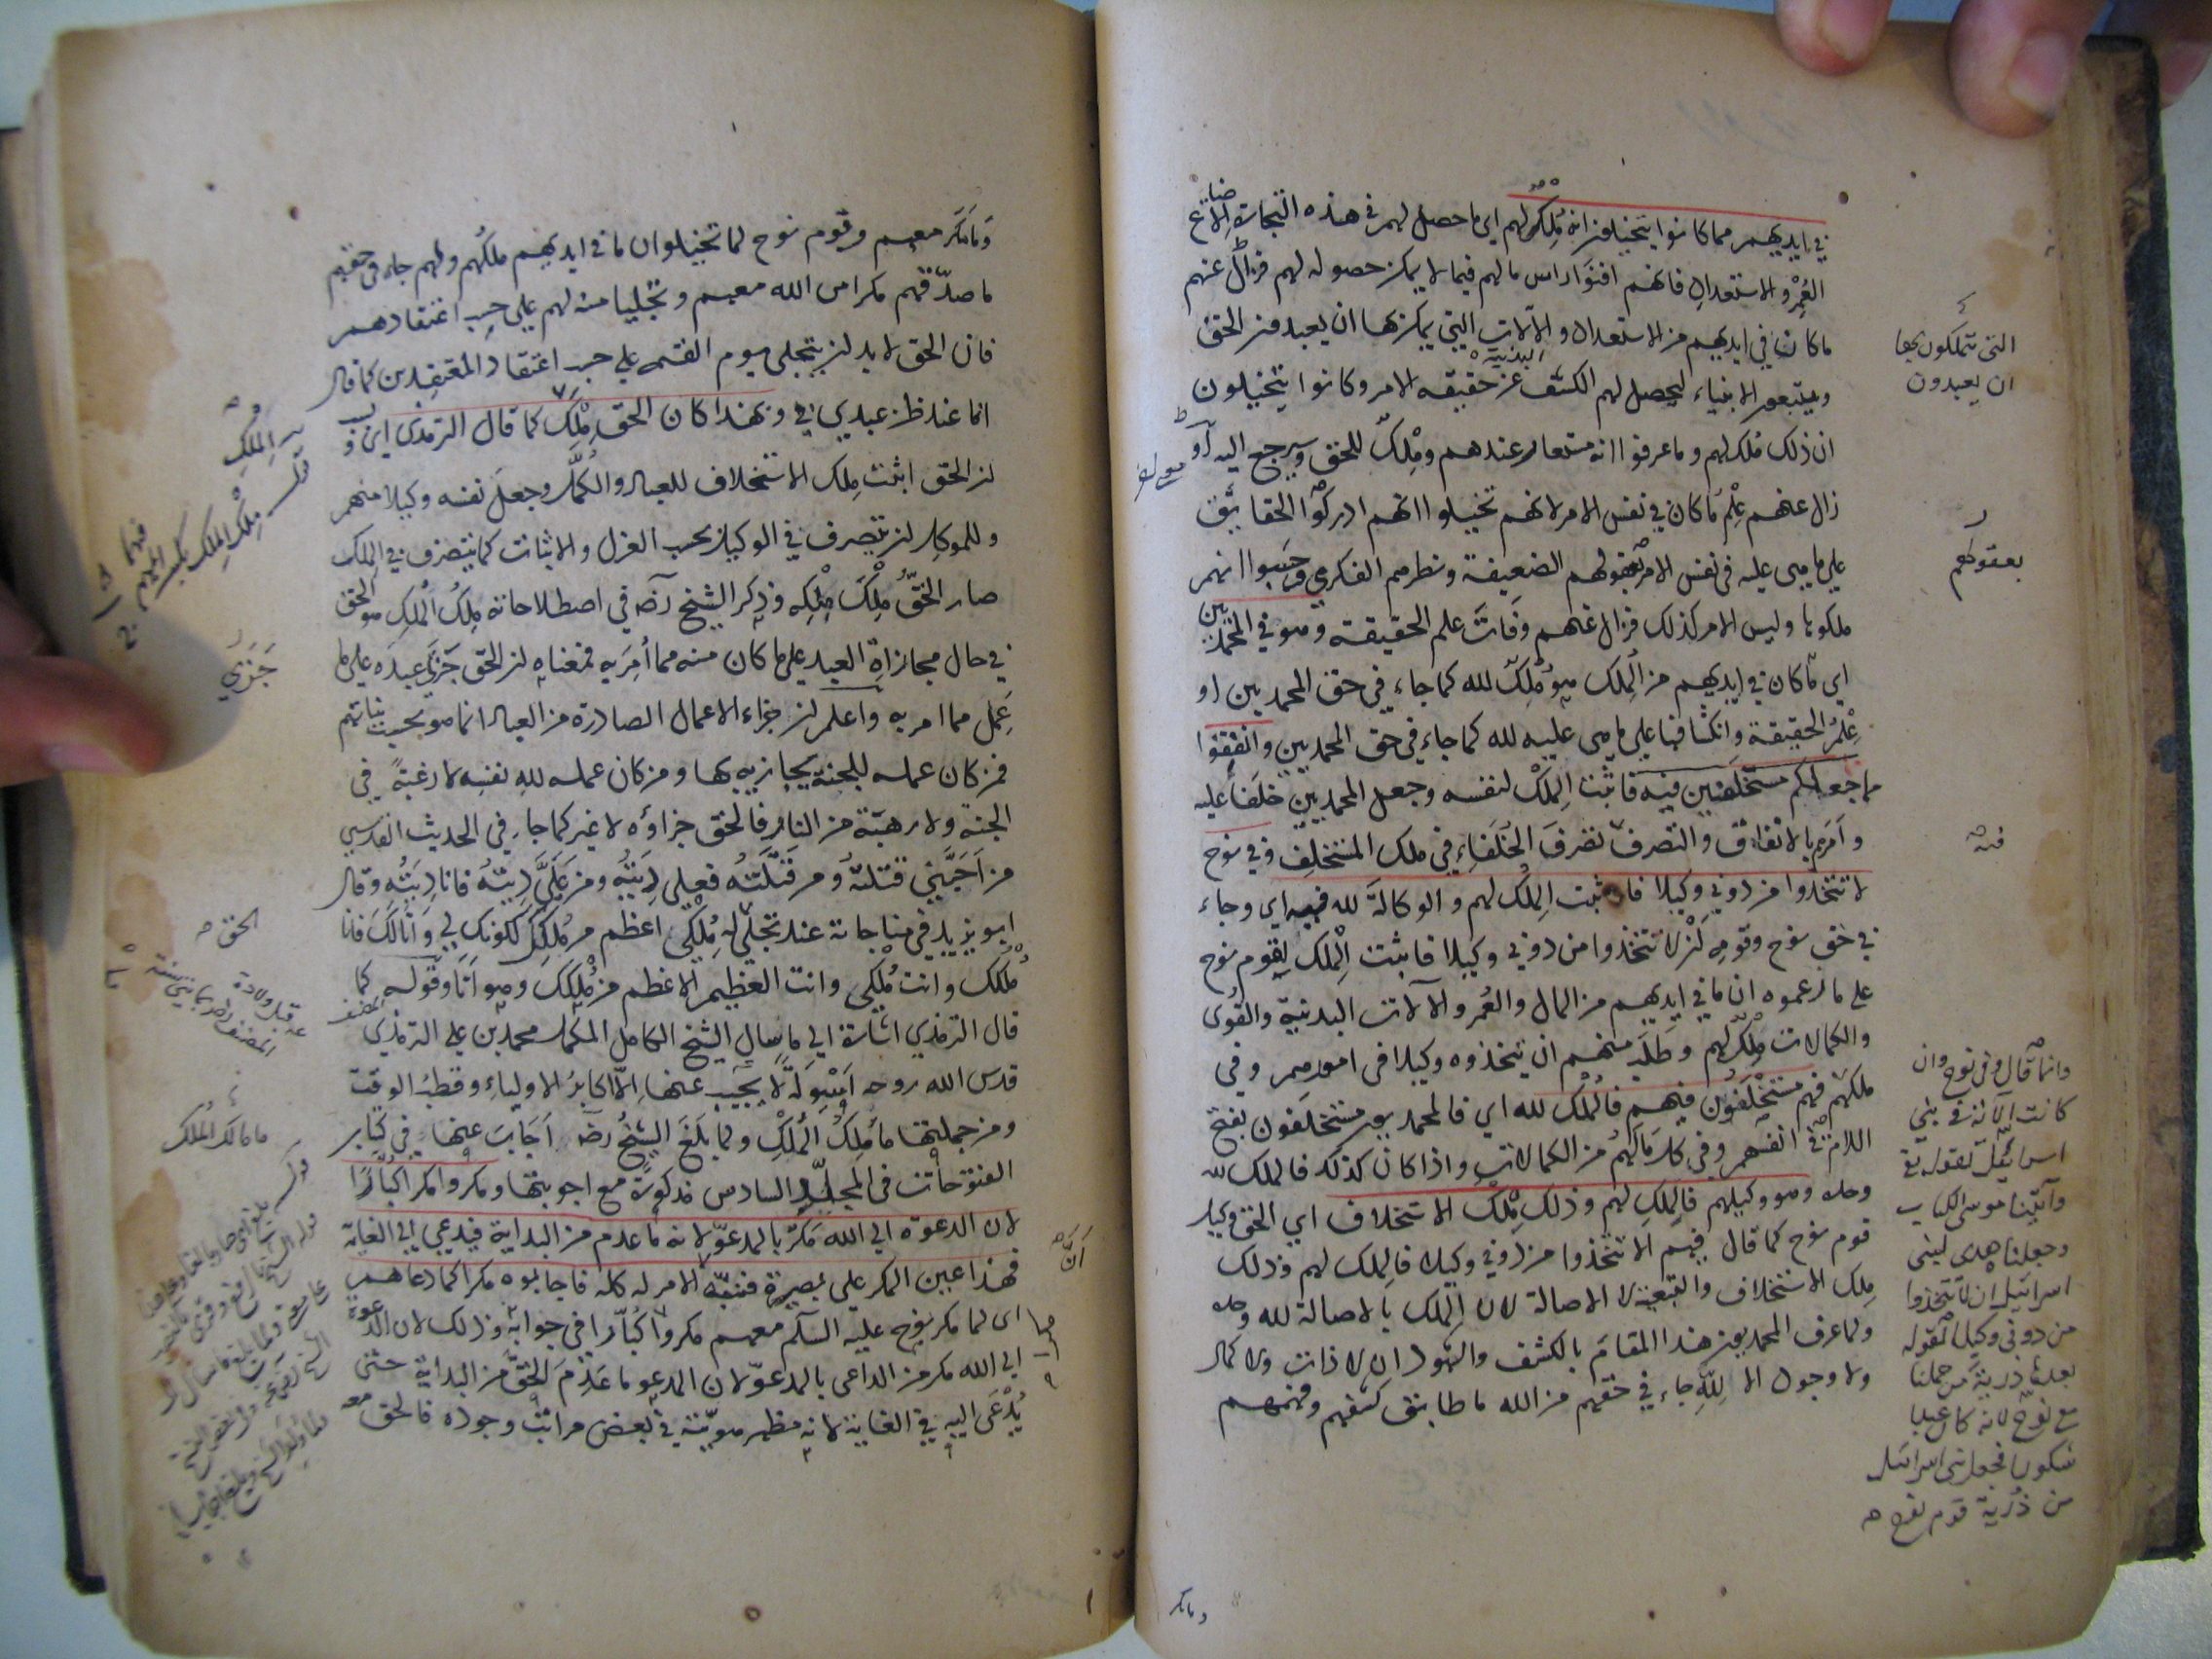 في ايديهم مما كانوا يتخيلون انه ملك لهم اي ما حصل لهم في هذه التجارة الا ضياع
العمر والاستعداد فانهم افنوا راس مالهم فيما لا يمكن حصوله لهم فزال عنهم
ما كان في ايديهم من الاستعداد والآلات البدنية التي يمكن بها ان يعبدون الحق
ويتبعون الانبياء ليحصل لهم الكشف عن حقيقة الامر وكانوا يتخيلون
ان ذلك ملك لهم وما عرفوا انه مستعار عندهم وملك للحق ويرجع اليه او
زال عنهم علم ما كان في نفس الامر لانهم تخيلوا انهم ادركوا الحقايق
على ما هي عليه في نفس الامر بعقولهم الضعيفة ونظرهم الفكري وحسبوا انهم
ملكوها وليس الامر كذلك فزال عنهم وفات علم الحقيقة وهو في المحمديين
اي ما كان في ايديهم من الملك هو ملك لله كما جاء في حق المحمديين او
علم الحقيقة وانكشافها على ما هي عليه لله كما جاء في حق المحمديين وانفقوا
مما جعلكم مستخلفين فيه فاثبت الملك لنفسه وجعل المحمديين خلفا عليه
وامرهم بالانفاق والتصرف تصرف الخلفاء في ملك المستخلف وفي نوح
لا تتخذوا من دوني وكيلا فاثبت الملك لهم والوكالة لله فيه اي وجاء
في حق نوح وقومه لن لا تتخذوا من دوني وكيلا فاثبت الملك لقوم نوح
على ما زعموه ان ما في ايديهم من المال والعمر والآلات البدنية والقوى
والكمالات ملك لهم وطلب منهم ان يتخذوه وكيلا في امورهم وفي
ملكهم فهم مستخلفون فيهم فالملك لله اي فالمحمديون مستخلفون بفتح
اللام في انفسهم وفي كل مالهم من الكمالات واذا كان كذلك فالملك لله
وحده وهو وكيلهم فالملك لهم وذلك ملك الاستخلاف اي الحق وكيل
قوم نوح كما قال فيهم الا تتخذوا من دوني وكيلا فالملك لهم وذلك
ملك الاستخلاف والتبعية لا الاصالة لان الملك بالاصالة لله وحده
ولما عرف المحمديون هذا المقام بالكشف والشهود ان لا ذات ولا كمال
ولا وجود الا لله جاء في حقهم من الله ما طابق كشفهم وفهمهم
التي تتملكون بها
ان يعبدون
بعقولهم
فيه
وانما قال وفي نوح وان
كانت الآية في بني
اسرائيل لقوله تع
وآتينا موسى الكتاب
وجعلناه هدى لبني
اسرائيل ان لا تتخذوا
من دوني وكيلا لقوله
بعده ذرية من حملنا
مع نوح لانه كان عبدا
شكورا فجعل بني اسرائيل
من ذرية قوم نوح
ومامكر
ومامكر معهم وقوم نوح لما تخيلوا ان ما في ايديهم ملكهم ولهم جاء في حقهم
ما صدقهم مكرا من الله معهم وتجليا منه لهم على حسب اعتقادهم
فان الحق لا بد لن يتجلى يوم القيمة على حسب اعتقاد المعتقدين كما قال
انا عند ظن عبدي بي وبهذا كان الحق ملك الملك كما قال الترمذي اي وبسبب
لن الحق اثبت ملك الاستخلاف للعباد والكمل وجعل نفسه وكيلا منهم
وللموكل لن يتصرف في الوكيل بحسب العزل والاثبات كما يتصرف في الملك
صار الحق ملك ملكه وذكر الشيخ رضه في اصطلاحاته ملك الملك هو الحق
في حال مجازاة العبد على ما كان منه مما أمر به فمعناه لن الحق جزى عبده على ما
عمل مما امر به واعلم لن جزاء الاعمال الصادرة من العباد انما هو بحسب نياتهم
فمن كان عمله للجنة يجازيه بها ومن كان عمله لله نفسه لا رغبة في
الجنة ولا رهبة من النار فالحق جزاؤه لا غير كما جاء في الحديث القدسي
من احبني قتلته ومن قتلته فعلي ديته ومن علي ديته فانا ديته وقال
ابو يزيد في مناجاته عند تجلى له ملكي اعظم من ملكك لكونك لي وانا لك فانا
ملكك وانت ملكي وانت العظيم الاعظم من ملكك وهو انا وقوله كما
قال الترمذي اشارة الى ما سال الشيخ الكامل المكمل محمد بن علي الترمذي
قدس الله روحه اسولة لا يجيب عنها الا اكابر الاولياء وقطب الوقت
ومن جملتها ما ملك الملك ولما بلغ الشيخ رضه اجاب عنها في كتاب
الفتوحات في المجلد السادس مذكورة مع اجوبتها ومكروا مكرا كبارا
لان الدعوة الى الله مكر بالمدعو لانه ما عدم من البداية فيدعى الى الغاية
فهذا عين المكر على بصيرة فنبه الامر له كله فاجابوه مكرا كما دعاهم
اى لما مكر نوح عليه السلم معهم مكروا كبارا في جوابه وذلك لان الدعوة
الى الله مكر من الداعى بالمدعو لان المدعو ما عدم الحق من البداية حتى
يدعى اليه في الغاية لانه مظهر هويته في بعض مراتب وجوده فالحق معه
الملك
ملك الملك بكسر الميم
جزي
الحق
ما مالك الملك
ان